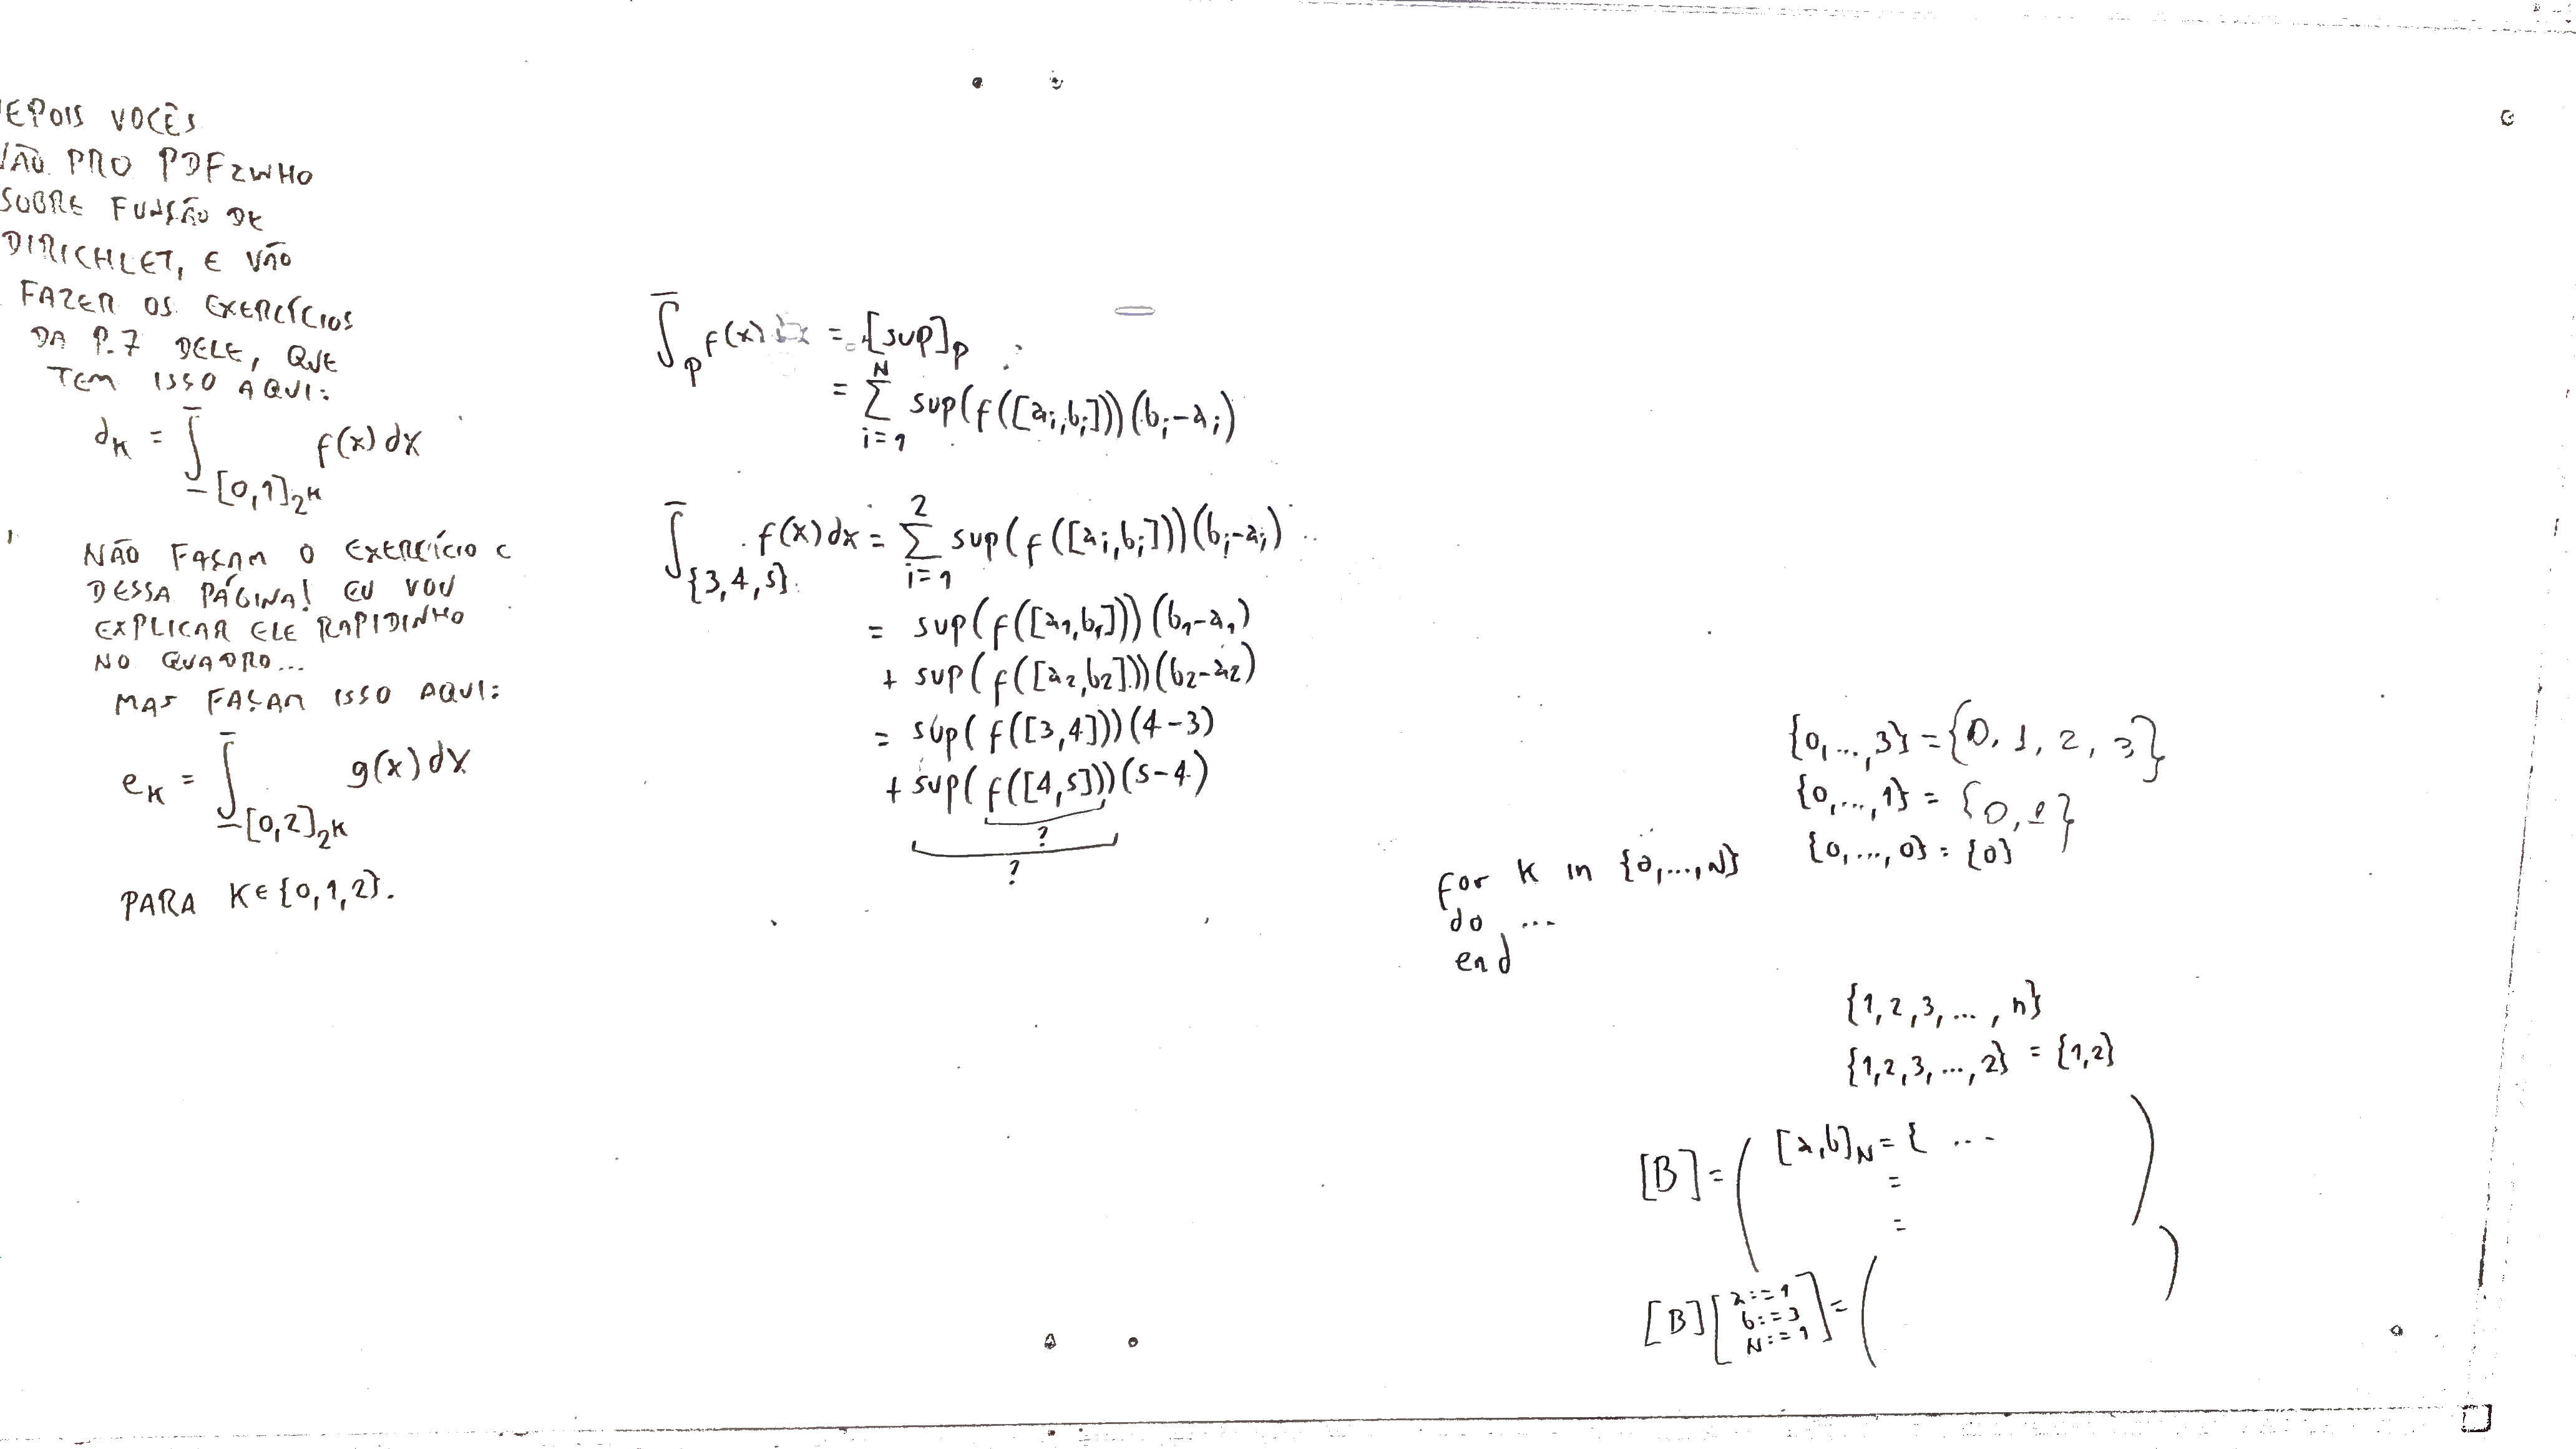 DEPOIS VOCÊS
VÃO PRO PDFZINHO
SOBRE FUNÇÃO DE
DIRICHLET, E VÃO
FAZER OS EXERCÍCIOS
DA P.7 DELE, QUE
TEM ISSO AQUI:
d_K = \overline{\underline{∫}}_{[0,1]_{2^K}} f(x) dx
NÃO FAÇAM O EXERCÍCIO C
DESSA PÁGINA! EU VOU
EXPLICAR ELE RAPIDINHO
NO QUADRO...
MAS FAÇAM ISSO AQUI:
e_K = \overline{\underline{∫}}_{[0,2]_{2^K}} g(x) dx
PARA K ∈ {0,1,2}.
\overline{∫}_P f(x) dx = [sup]_P
= Σ_{i=1}^{N} sup(f([a_i,b_i]))(b_i-a_i)
\overline{∫}_{{3,4,5}} f(x) dx = Σ_{i=1}^{2} sup(f([a_i,b_i]))(b_i-a_i)
= sup(f([a_1,b_1]))(b_1-a_1)
+ sup(f([a_2,b_2]))(b_2-a_2)
= sup(f([3,4]))(4-3)
+ sup(f([4,5]))(5-4)
?
?
{0,...,3} = {0, 1, 2, 3}
{0,...,1} = {0, 1}
{0,...,0} = {0}
for K in {0,...,N}
do ...
end
{1,2,3,...,n}
{1,2,3,...,2} = {1,2}
[B] = ( [a,b]_N = { ...
=
= )
[B] [ a:=1
b:=3
N:=1 ] = ( )